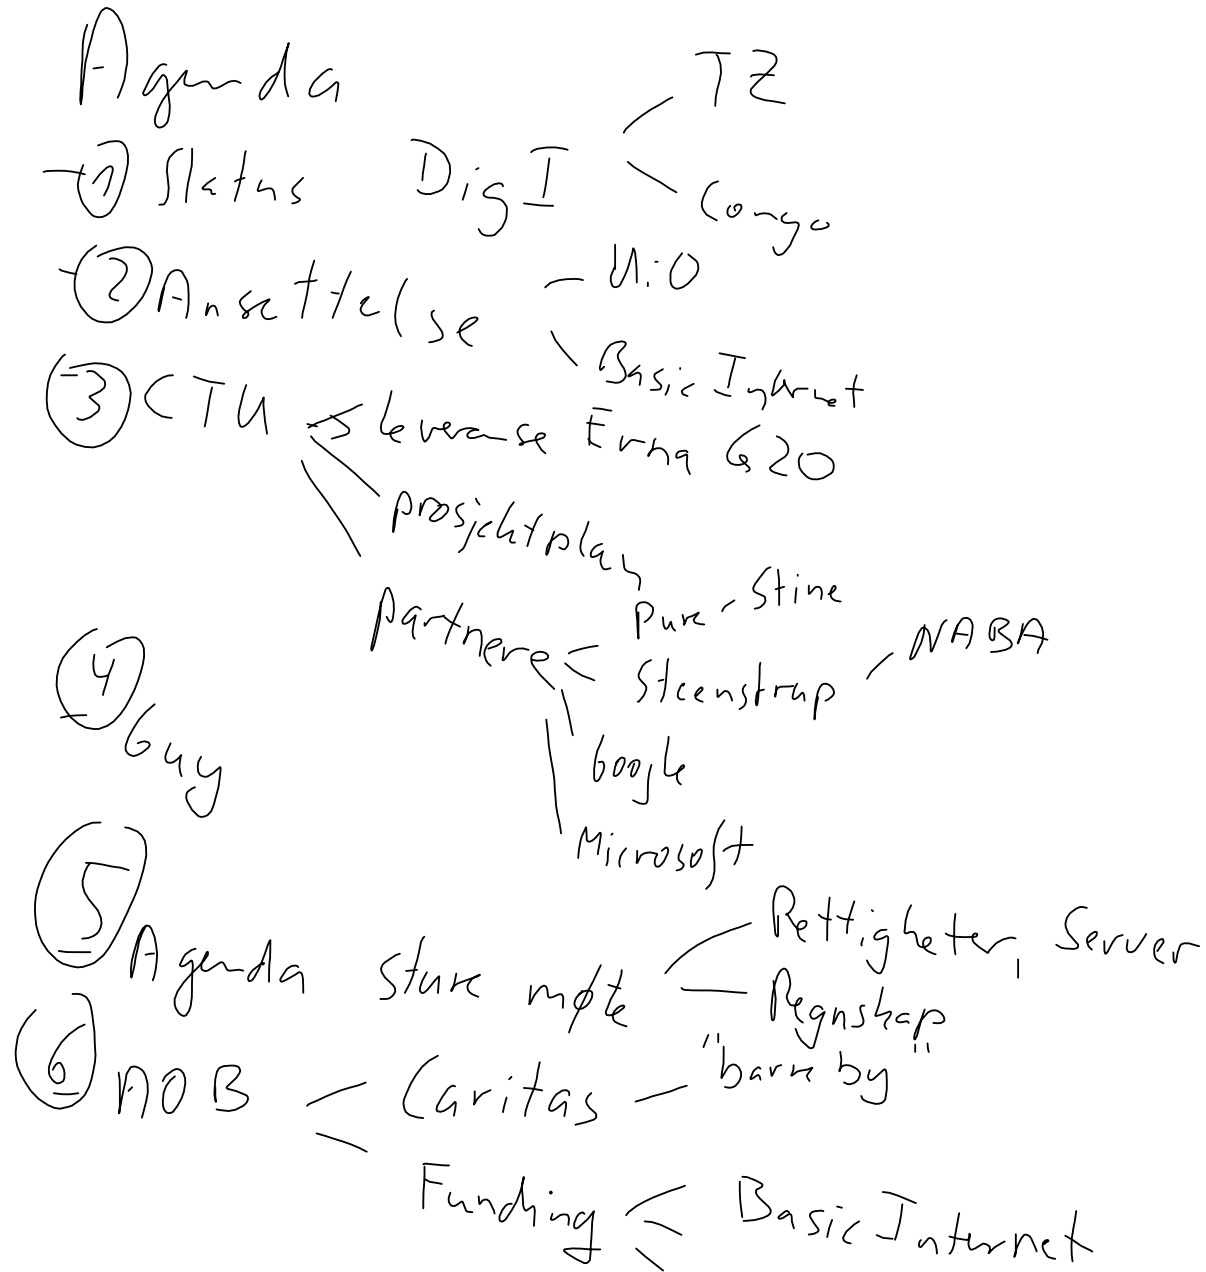 Agenda
TZ
1 Status DigI
Congo
2 Ansettelse
UiO
Basic Internet
3 CTU leveranse Erna G20
prosjektplan
partnere
Pure - Stine
Steenstrup
NABA
4 Guy
Google
Microsoft
5 Agenda styre møte
Rettigheter, Server
Regnskap
6 AOB
Caritas
"barne by"
Funding
Basic Internet